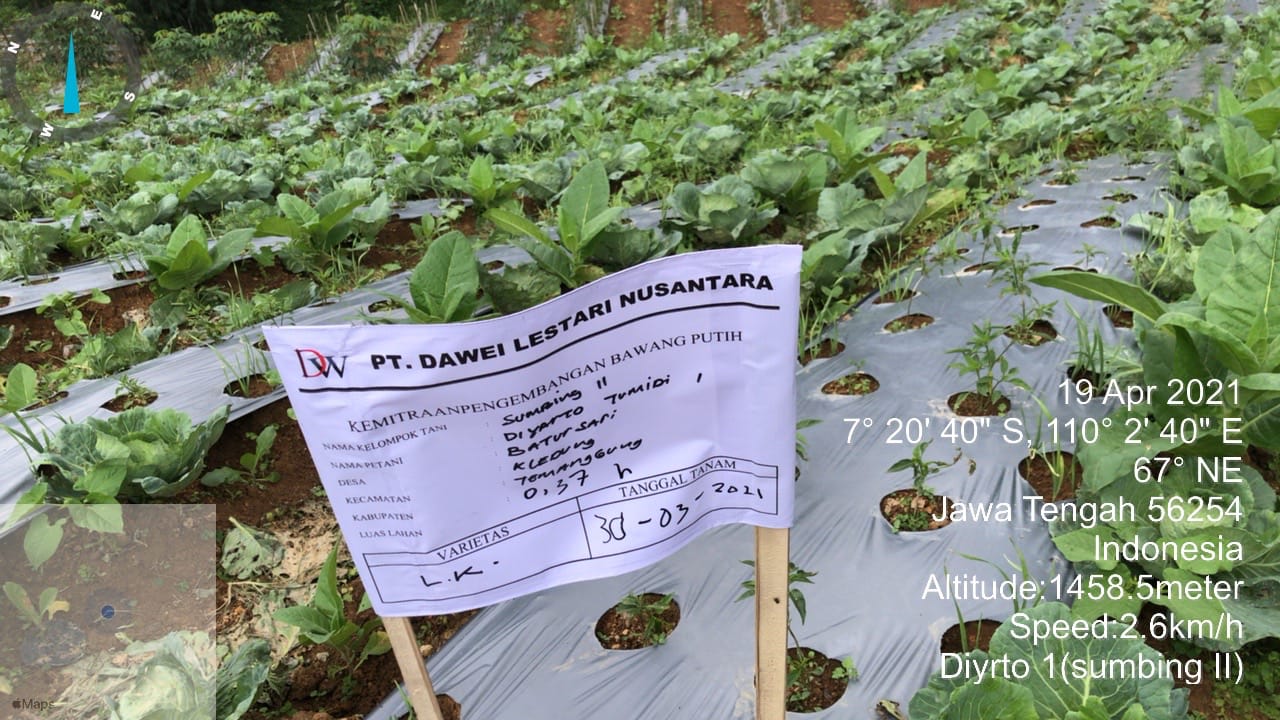 N
E
S
W
DW PT. DAWEI LESTARI NUSANTARA
KEMITRAANPENGEMBANGAN BAWANG PUTIH
NAMA KELOMPOK TANI : SUMBING II
NAMA PETANI : DIYARTO TUMIDI 1
DESA : BATURSARI
KECAMATAN : KLEDUNG
KABUPATEN : TEMANGGUNG
LUAS LAHAN : 0,37 h
VARIETAS TANGGAL TANAM
L.K. 30-03-2021
19 Apr 2021
7° 20' 40" S, 110° 2' 40" E
67° NE
Jawa Tengah 56254
Indonesia
Altitude:1458.5meter
Speed:2.6km/h
Diyrto 1(sumbing II)
Maps